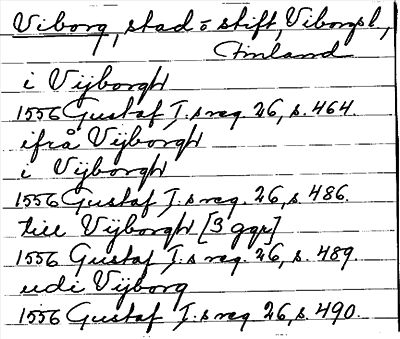 Viborg, stad o stift, Viborgsl,
Finland
i Vijborgh
1556 Gustaf I:s reg. 26, s. 464.
ifrå Vijborgh
i Vijborgh
1556 Gustaf I:s reg. 26, s. 486.
till Vijborgh [3 ggr]
1556 Gustaf I:s reg. 26, s. 489.
udi Vijborg
1556 Gustaf I:s reg 26, s. 490.